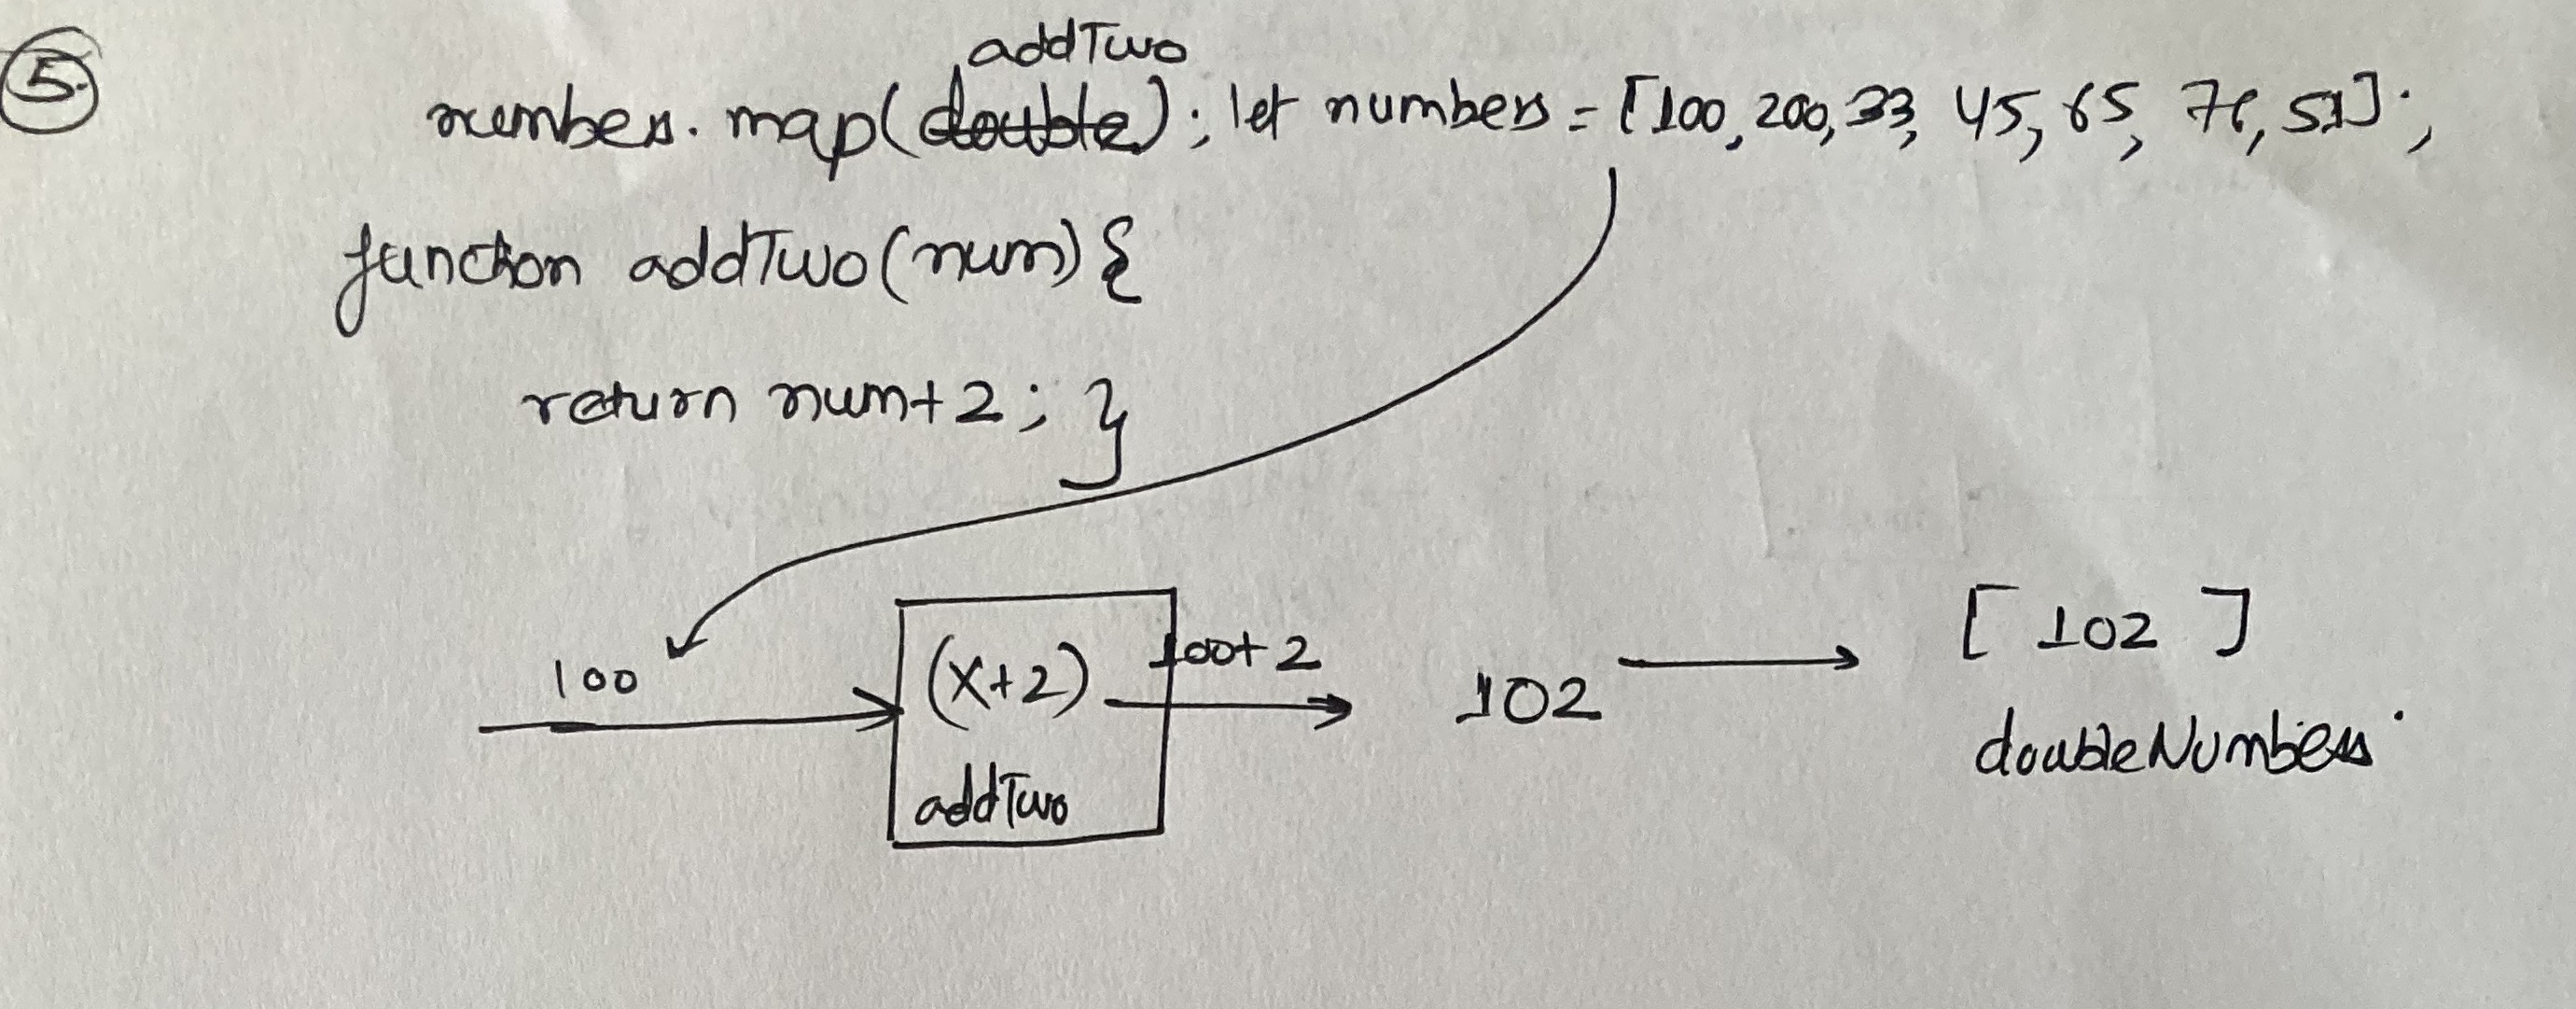 5.
addTwo
numbers.map(double); let numbers = [100, 200, 33, 45, 65, 76, 51];
function addTwo(num) {
return num+2; }
100
(x+2)
100+2
102
[ 102 ]
addTwo
doubleNumbers.